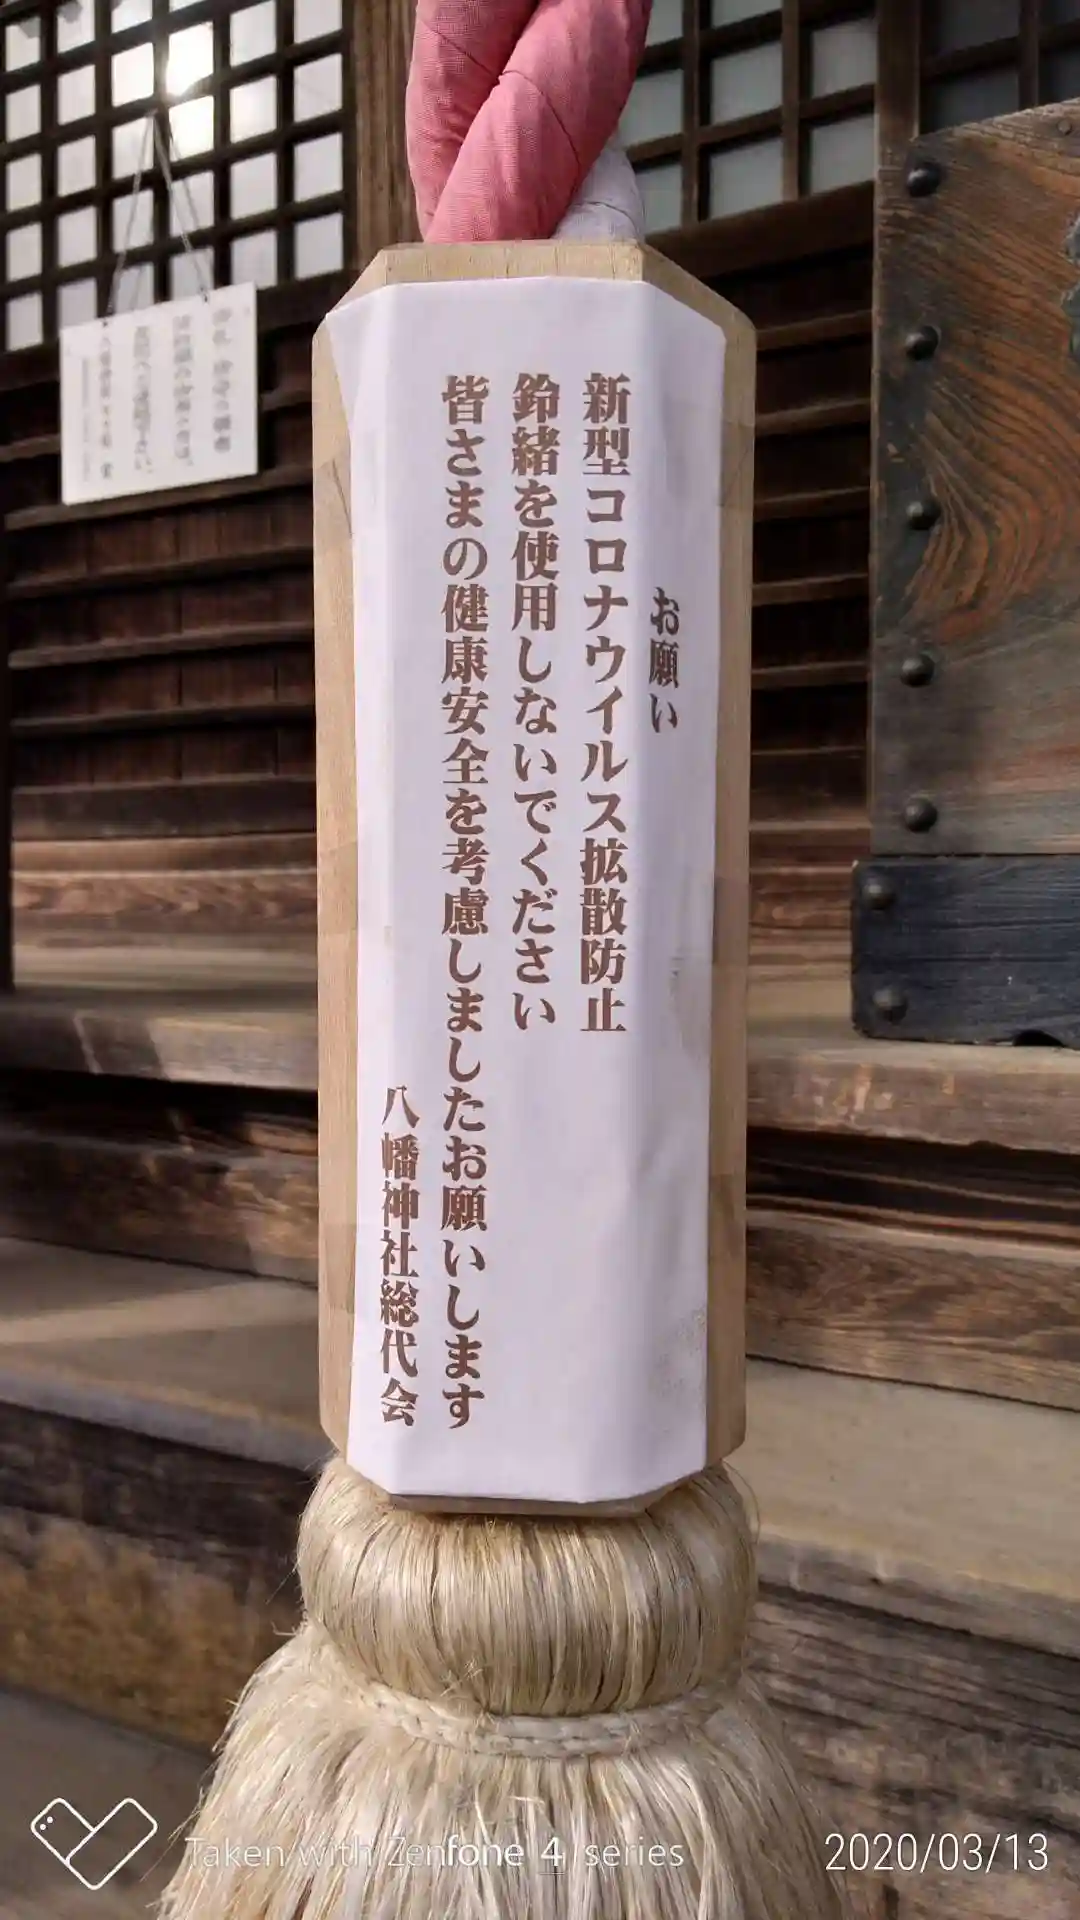 お願い
新型コロナウイルス拡散防止
鈴緒を使用しないでください
皆さまの健康安全を考慮しましたお願いします
八幡神社総代会
Taken with Zenfone 4 series
2020/03/13